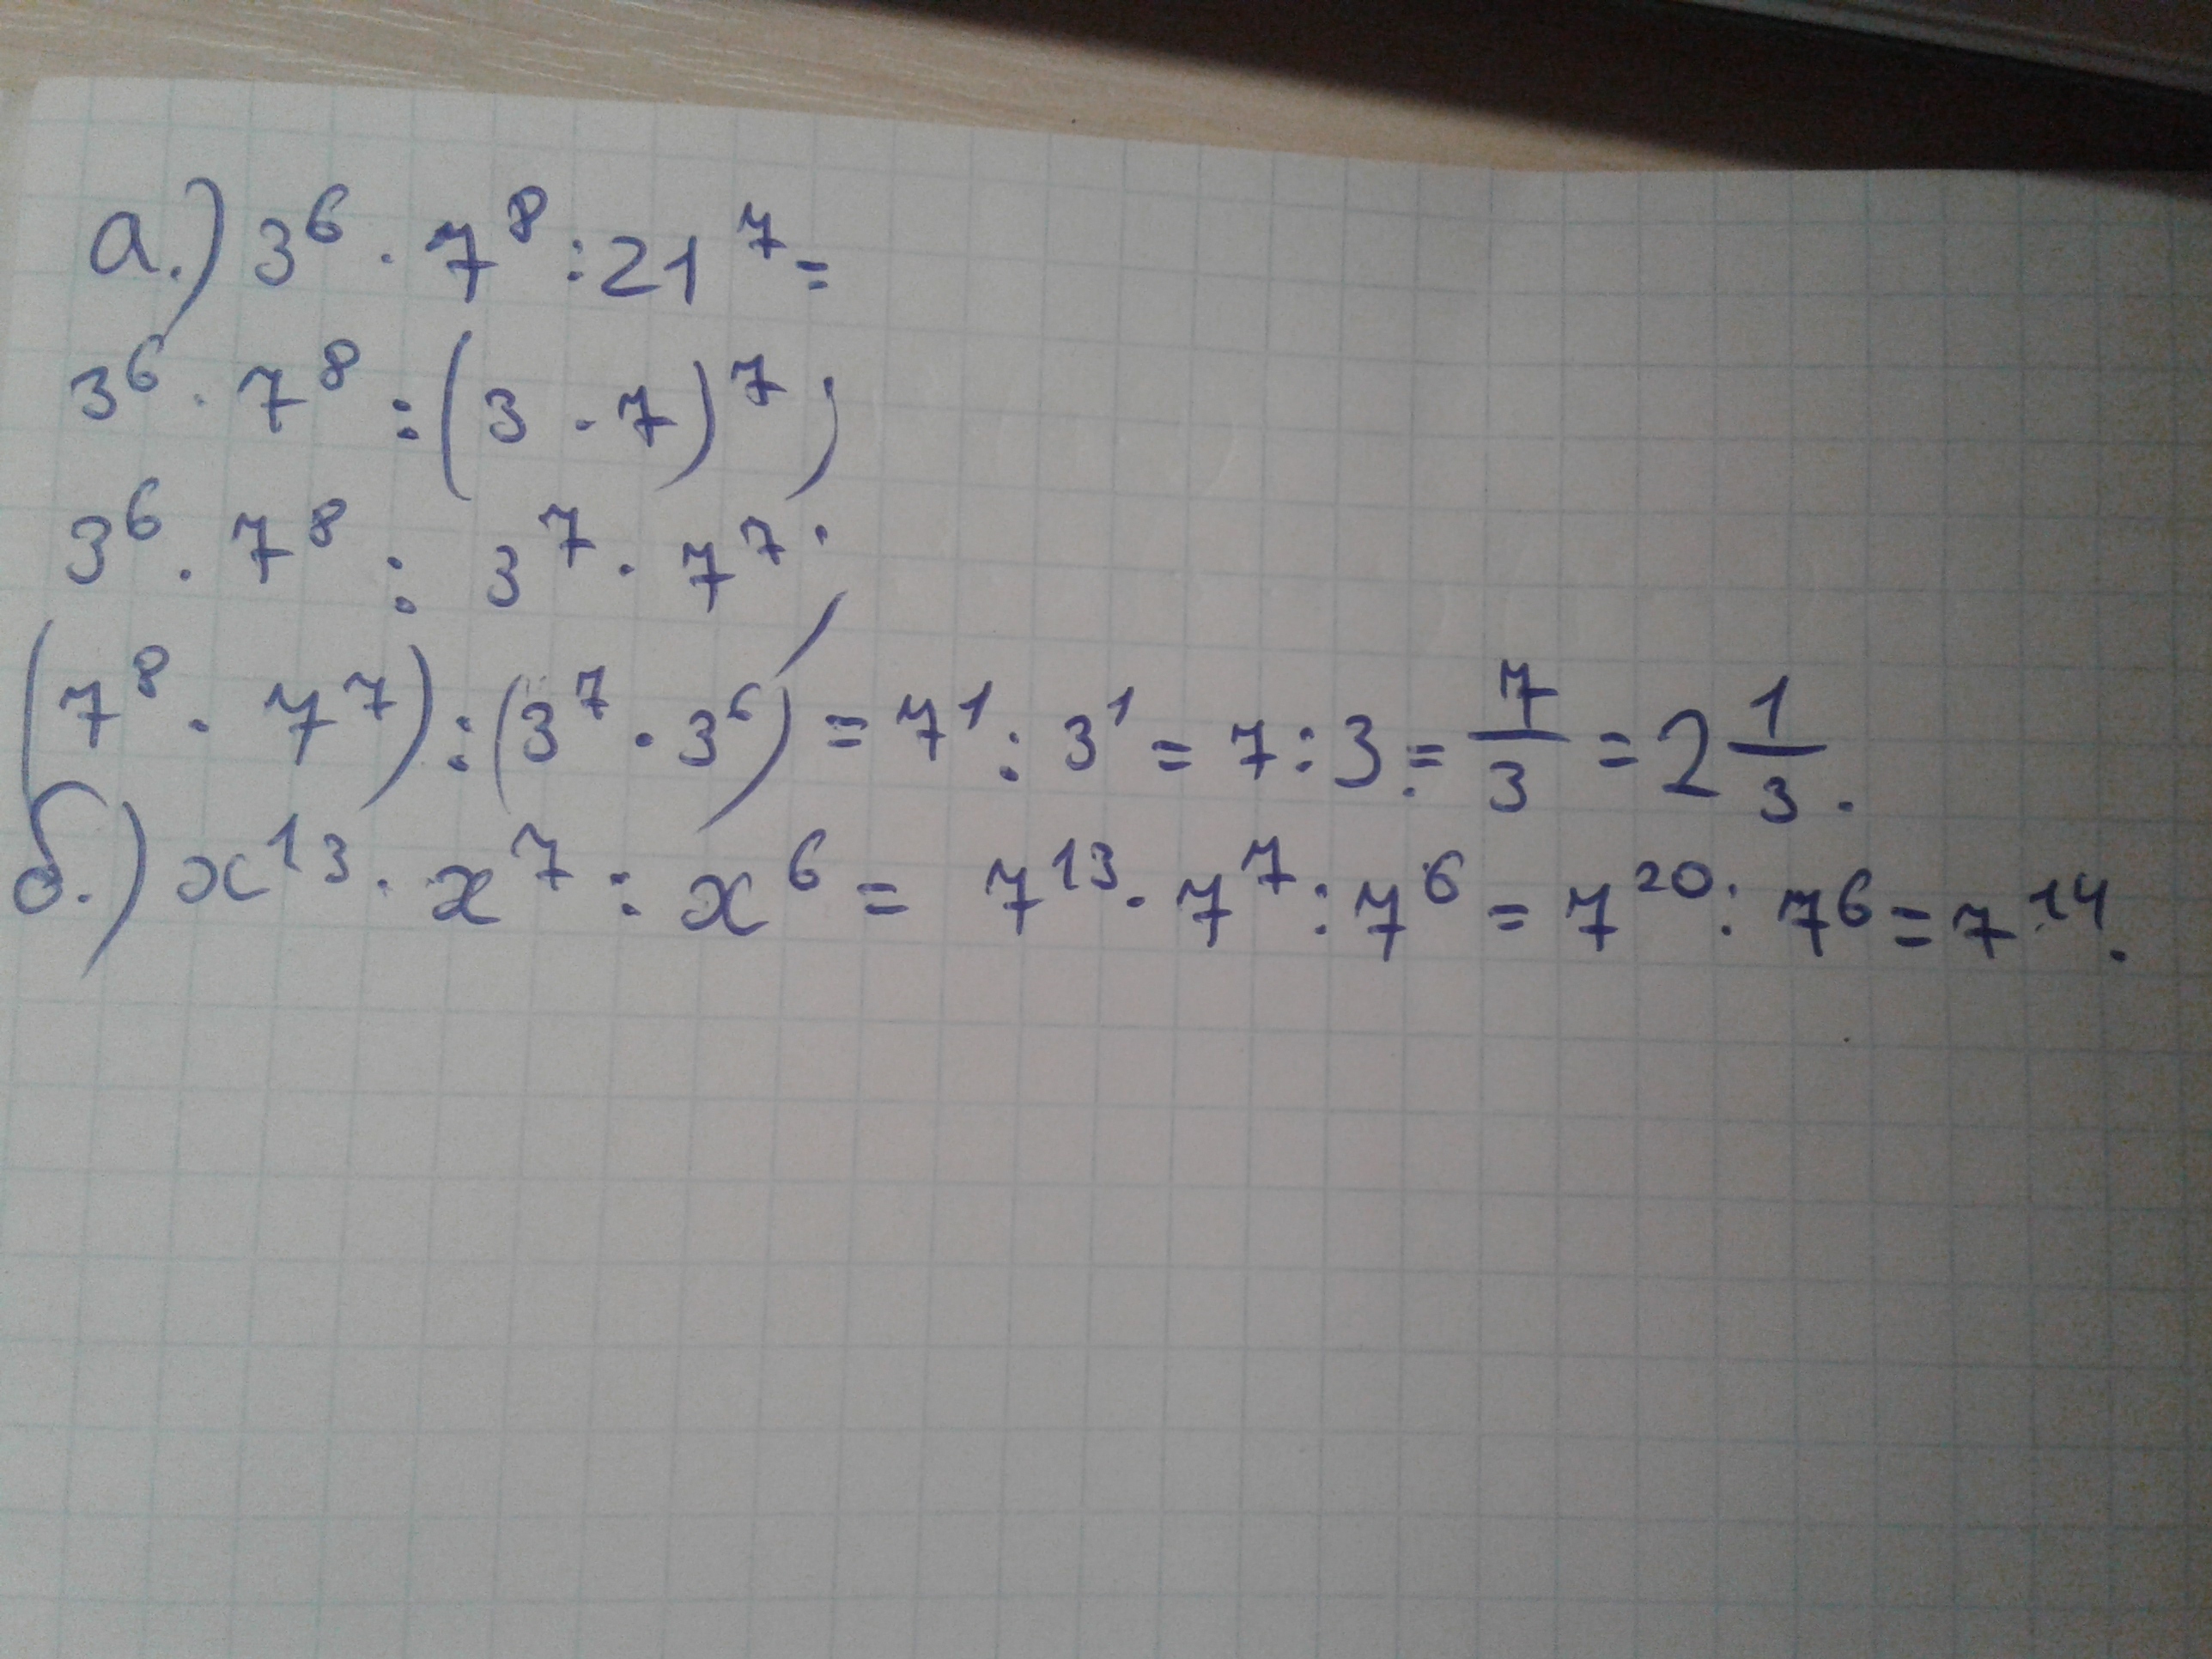 а.) 3⁶ · 7⁸ : 21⁷ =
3⁶ · 7⁸ : (3 · 7)⁷;
3⁶ · 7⁸ : 3⁷ · 7⁷;
(7⁸ · 7⁷) : (3⁷ · 3⁶) = 7¹ : 3¹ = 7 : 3. = 7/3 = 2 1/3.
б.) x¹³ · x⁷ : x⁶ = 7¹³ · 7⁷ : 7⁶ = 7²⁰ : 7⁶ = 7¹⁴.